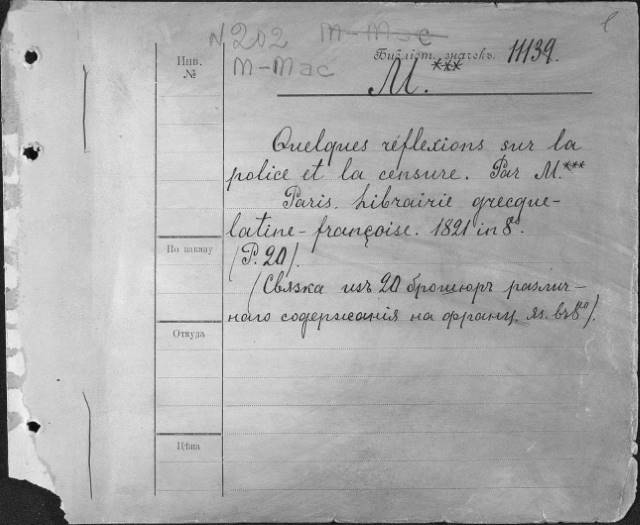 N 202 M-Msc
Библіот. значекъ. 11139.
M-Mac
M.***
Инв.
№
Quelques réflexions sur la
police et la censure. Par M.***
Paris. Librairie grecque-
latine-françoise. 1821 in 8°.
(P. 20).
(Связка изъ 20 брошюръ различ-
наго содержанія на франц. яз. въ 8°).
По каталогу
Откуда
Цѣна